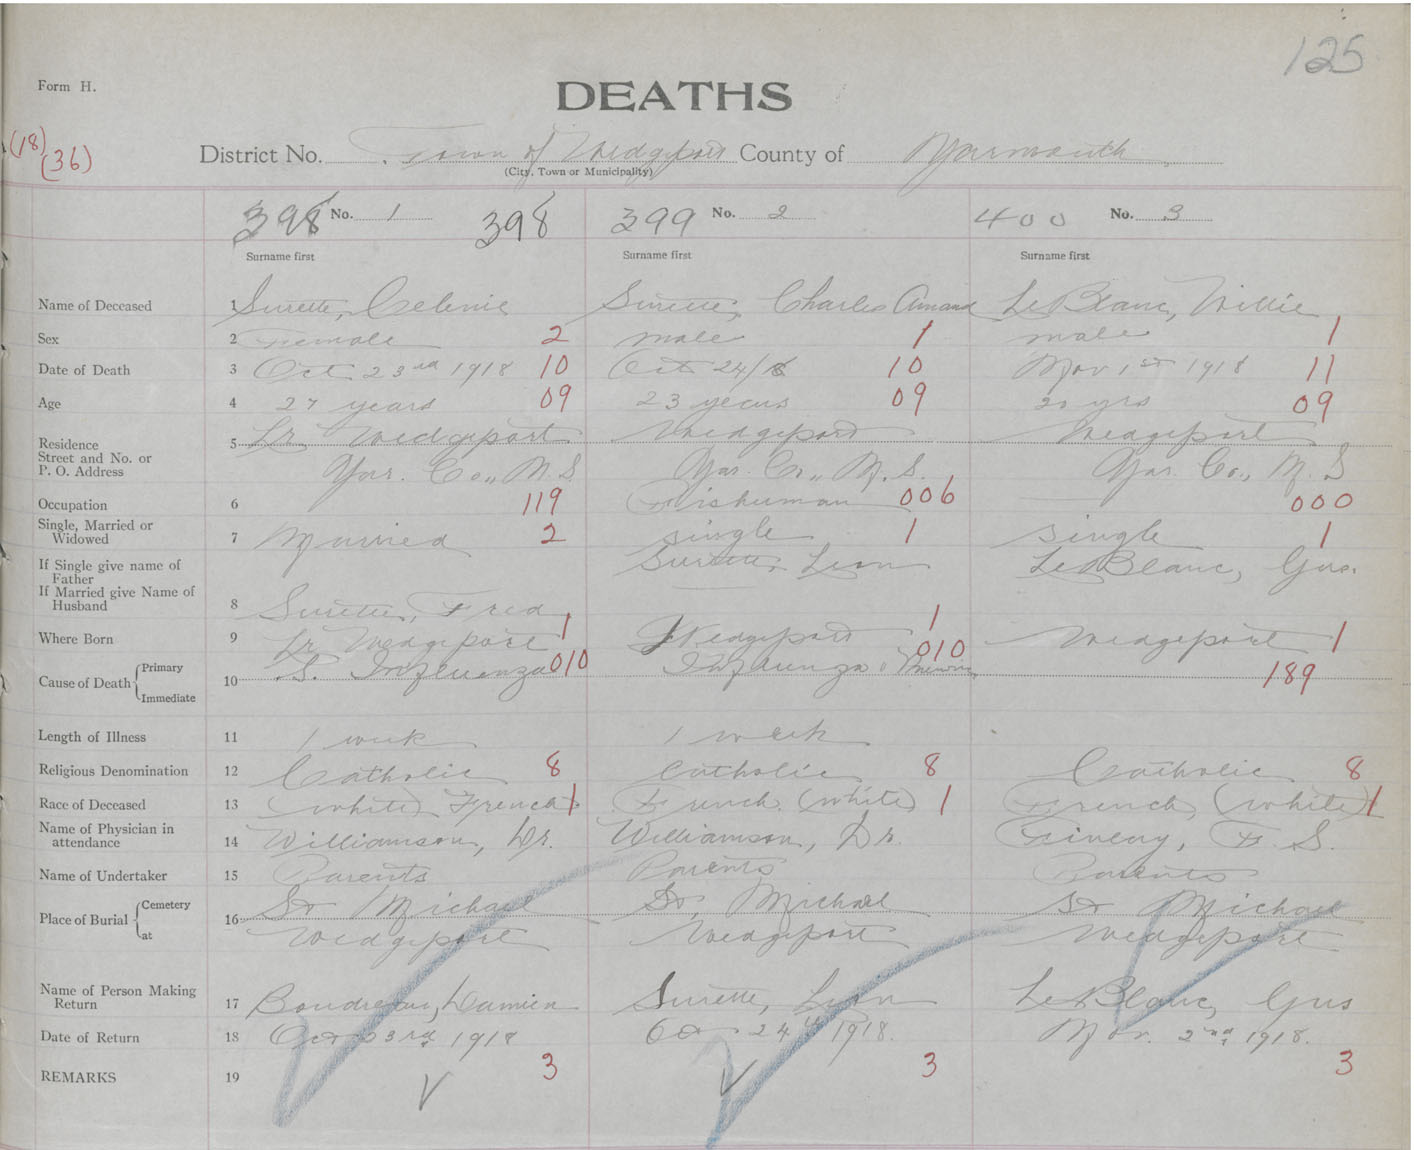 125
Form H.
DEATHS
(18)
(36)
District No. Town of Wedgeport County of Yarmouth
(City, Town or Municipality)
398 No. 1 398 399 No. 2 400 No. 3
Surname first Surname first Surname first
Name of Deceased 1 Surette, Celenie Surette, Charles Amand LeBlanc, Willie
Sex 2 Female 2 male 1 male 1
Date of Death 3 Oct 23rd 1918 10 Oct 24/18 10 Nov 1st 1918 11
Age 4 27 years 09 23 years 09 20 yrs 09
Residence
Street and No. or
P. O. Address
5 Lr Wedgeport Wedgeport Wedgeport
Yar. Co., N. S. Yar. Co., N. S. Yar. Co., N. S
Occupation 6 119 Fisherman 006 000
Single, Married or
Widowed
7 Married 2 single 1 single 1
If Single give name of
Father
Surette, Leon LeBlanc, Gus.
If Married give Name of
Husband
8 Surette, Fred
Where Born 9 Lr Wedgeport 1 Wedgeport 1 Wedgeport 1
Cause of Death Primary
Immediate
10 S. Influenza 010 Influenza 010 189
Length of Illness 11 1 week 1 week
Religious Denomination 12 Catholic 8 Catholic 8 Catholic 8
Race of Deceased 13 (white) French 1 French (white) 1 French (white) 1
Name of Physician in
attendance
14 Williamson, Dr. Williamson, Dr. F. S.
Name of Undertaker 15 Parents Parents Parents
Place of Burial Cemetery
at
16 St Michael St, Michael St Michael
Wedgeport Wedgeport Wedgeport
Name of Person Making
Return
17 Boudreau, Damien Surette, Leon LeBlanc, Gus
Date of Return 18 Oct 23rd 1918 Oct 24th 1918. Nov. 2nd 1918.
REMARKS 19 3 3 3